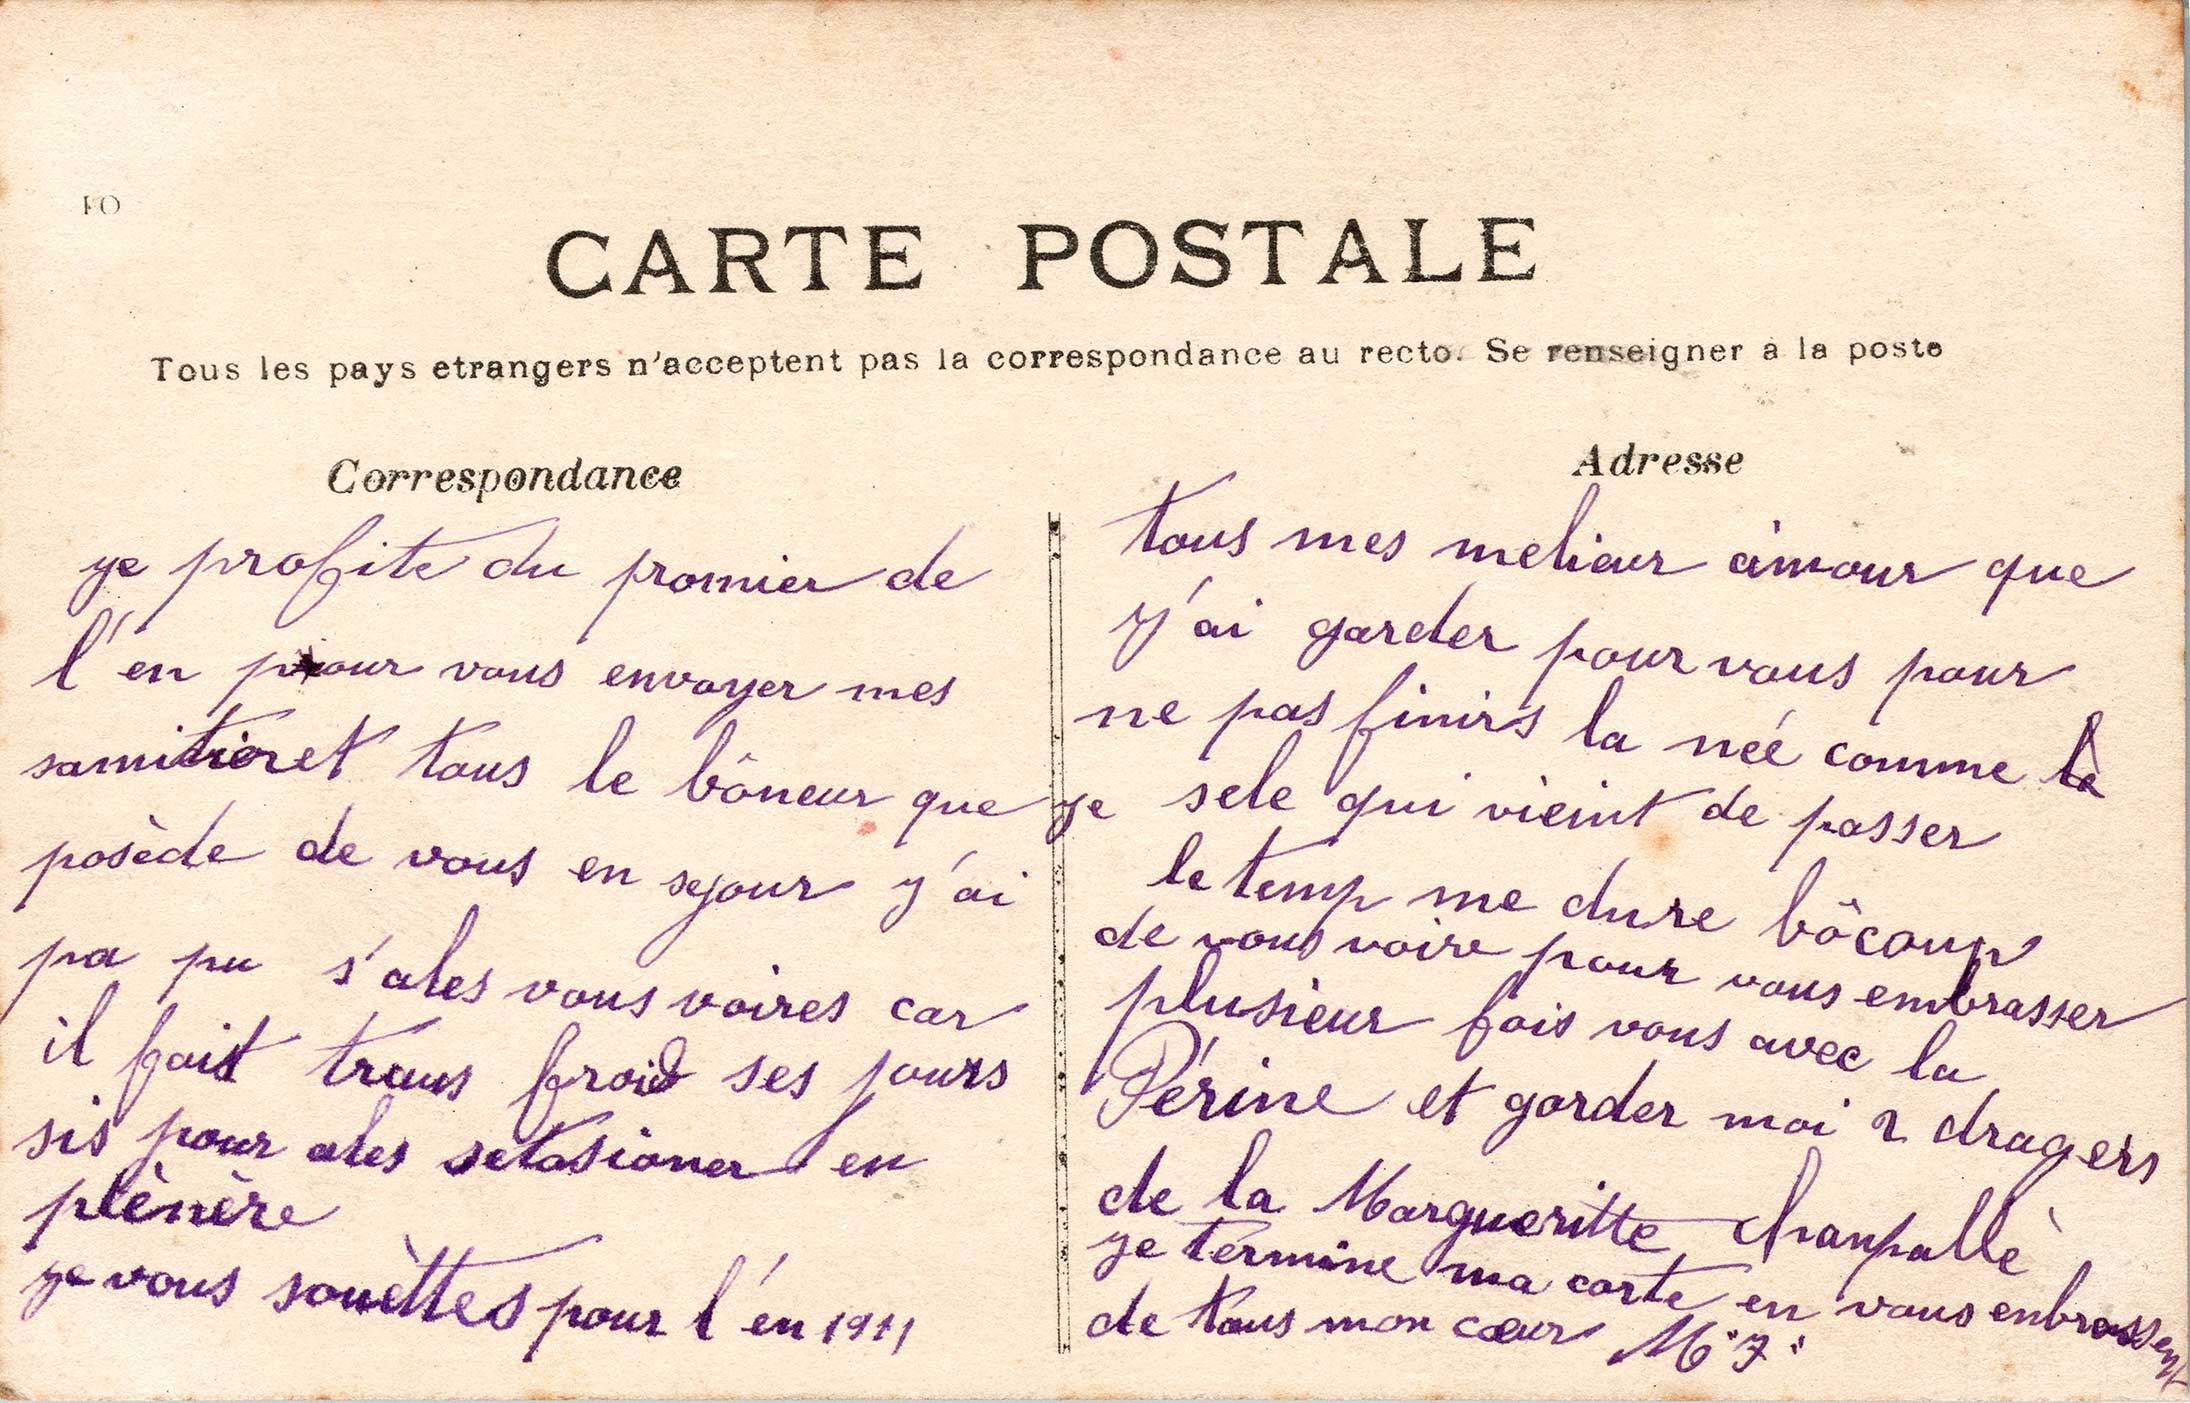 FO
CARTE POSTALE
Tous les pays etrangers n'acceptent pas la correspondance au recto. Se renseigner a la poste
Correspondance
ye profite du promier de
l'en pour vous envoyer mes
samitier et tous le bôneur que ye
posède de vous en sejour y'ai
pa pu s'ales vous voires car
il fait traus froid ses jours
sis pour ales setasioner en
plènère
ye vous souèttes pour l'én 1911
Adresse
tous mes melieur amour que
y'ai garder pour vous pour
ne pas finirs la néé comme la
sele qui vieint de passer
le temp me dure bôcoup
de vous voire pour vous embrasser
plusieur fois vous avec la
Périne et garder moi 2 dragers
de la Margueritte Chanpallè
ye termine ma carte en vous enbrassent
de tous mon cœur M. J.